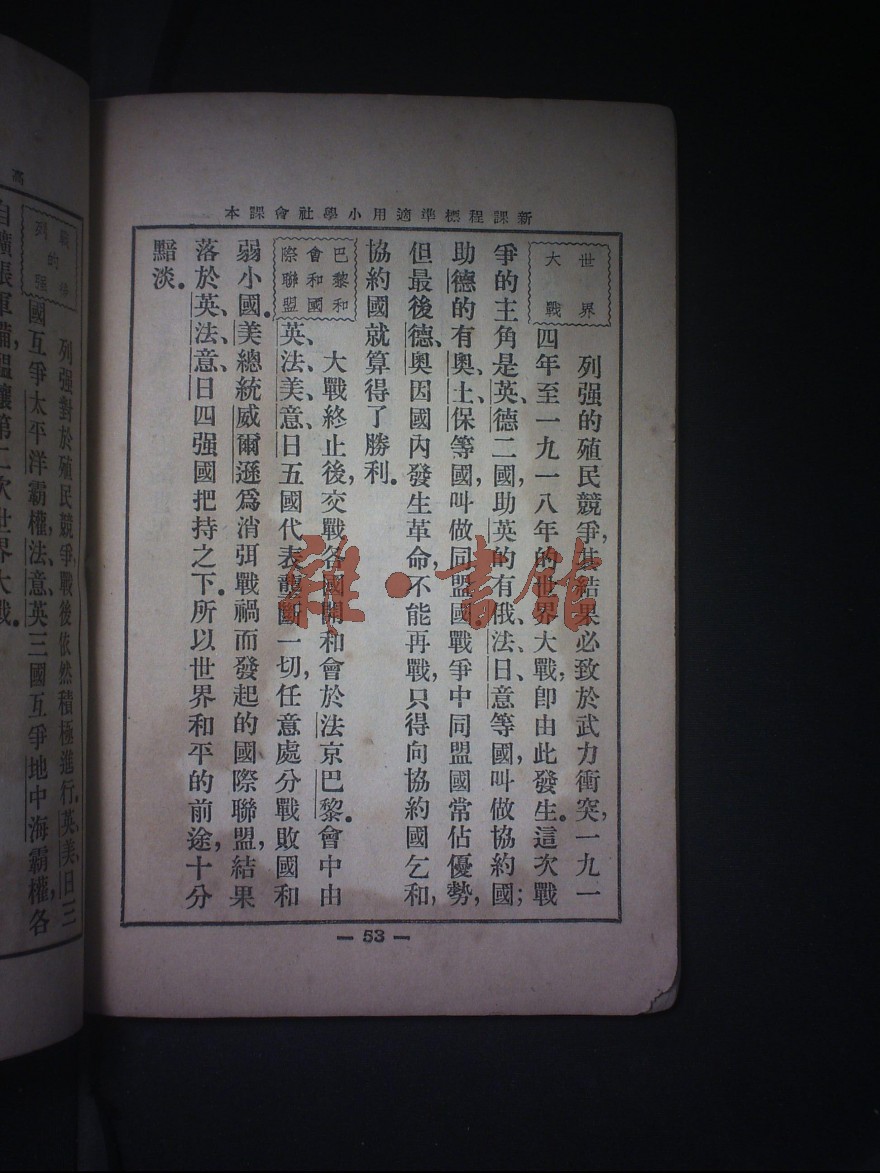 新課程標準適用小學社會課本
世界
大戰
列强的殖民競爭，其結果必致於武力衝突，一九一
四年至一九一八年的世界大戰，卽由此發生。這次戰
爭的主角是英、德二國，助英的有俄、法、日、意等國，叫做協約國；
助德的有奧、土、保等國，叫做同盟國。戰爭中同盟國常佔優勢，
但最後德、奧因國內發生革命，不能再戰，只得向協約國乞和，
協約國就算得了勝利。
巴黎和
會和國
際聯盟
大戰終止後，交戰各國開和會於法京巴黎。會中由
英、法、美、意、日五國代表壟斷一切，任意處分戰敗國和
弱小國。美總統威爾遜爲消弭戰禍而發起的國際聯盟，結果
落於英、法、意、日四强國把持之下。所以世界和平的前途，十分
黯淡。
— 53 —
雜·書館
高
列强
列强對於殖民競爭，戰後依然積極進行。英、美、日三
國互爭太平洋霸權，法、意、英三國互爭地中海霸權，各
自擴張軍備，醞釀第二次世界大戰。